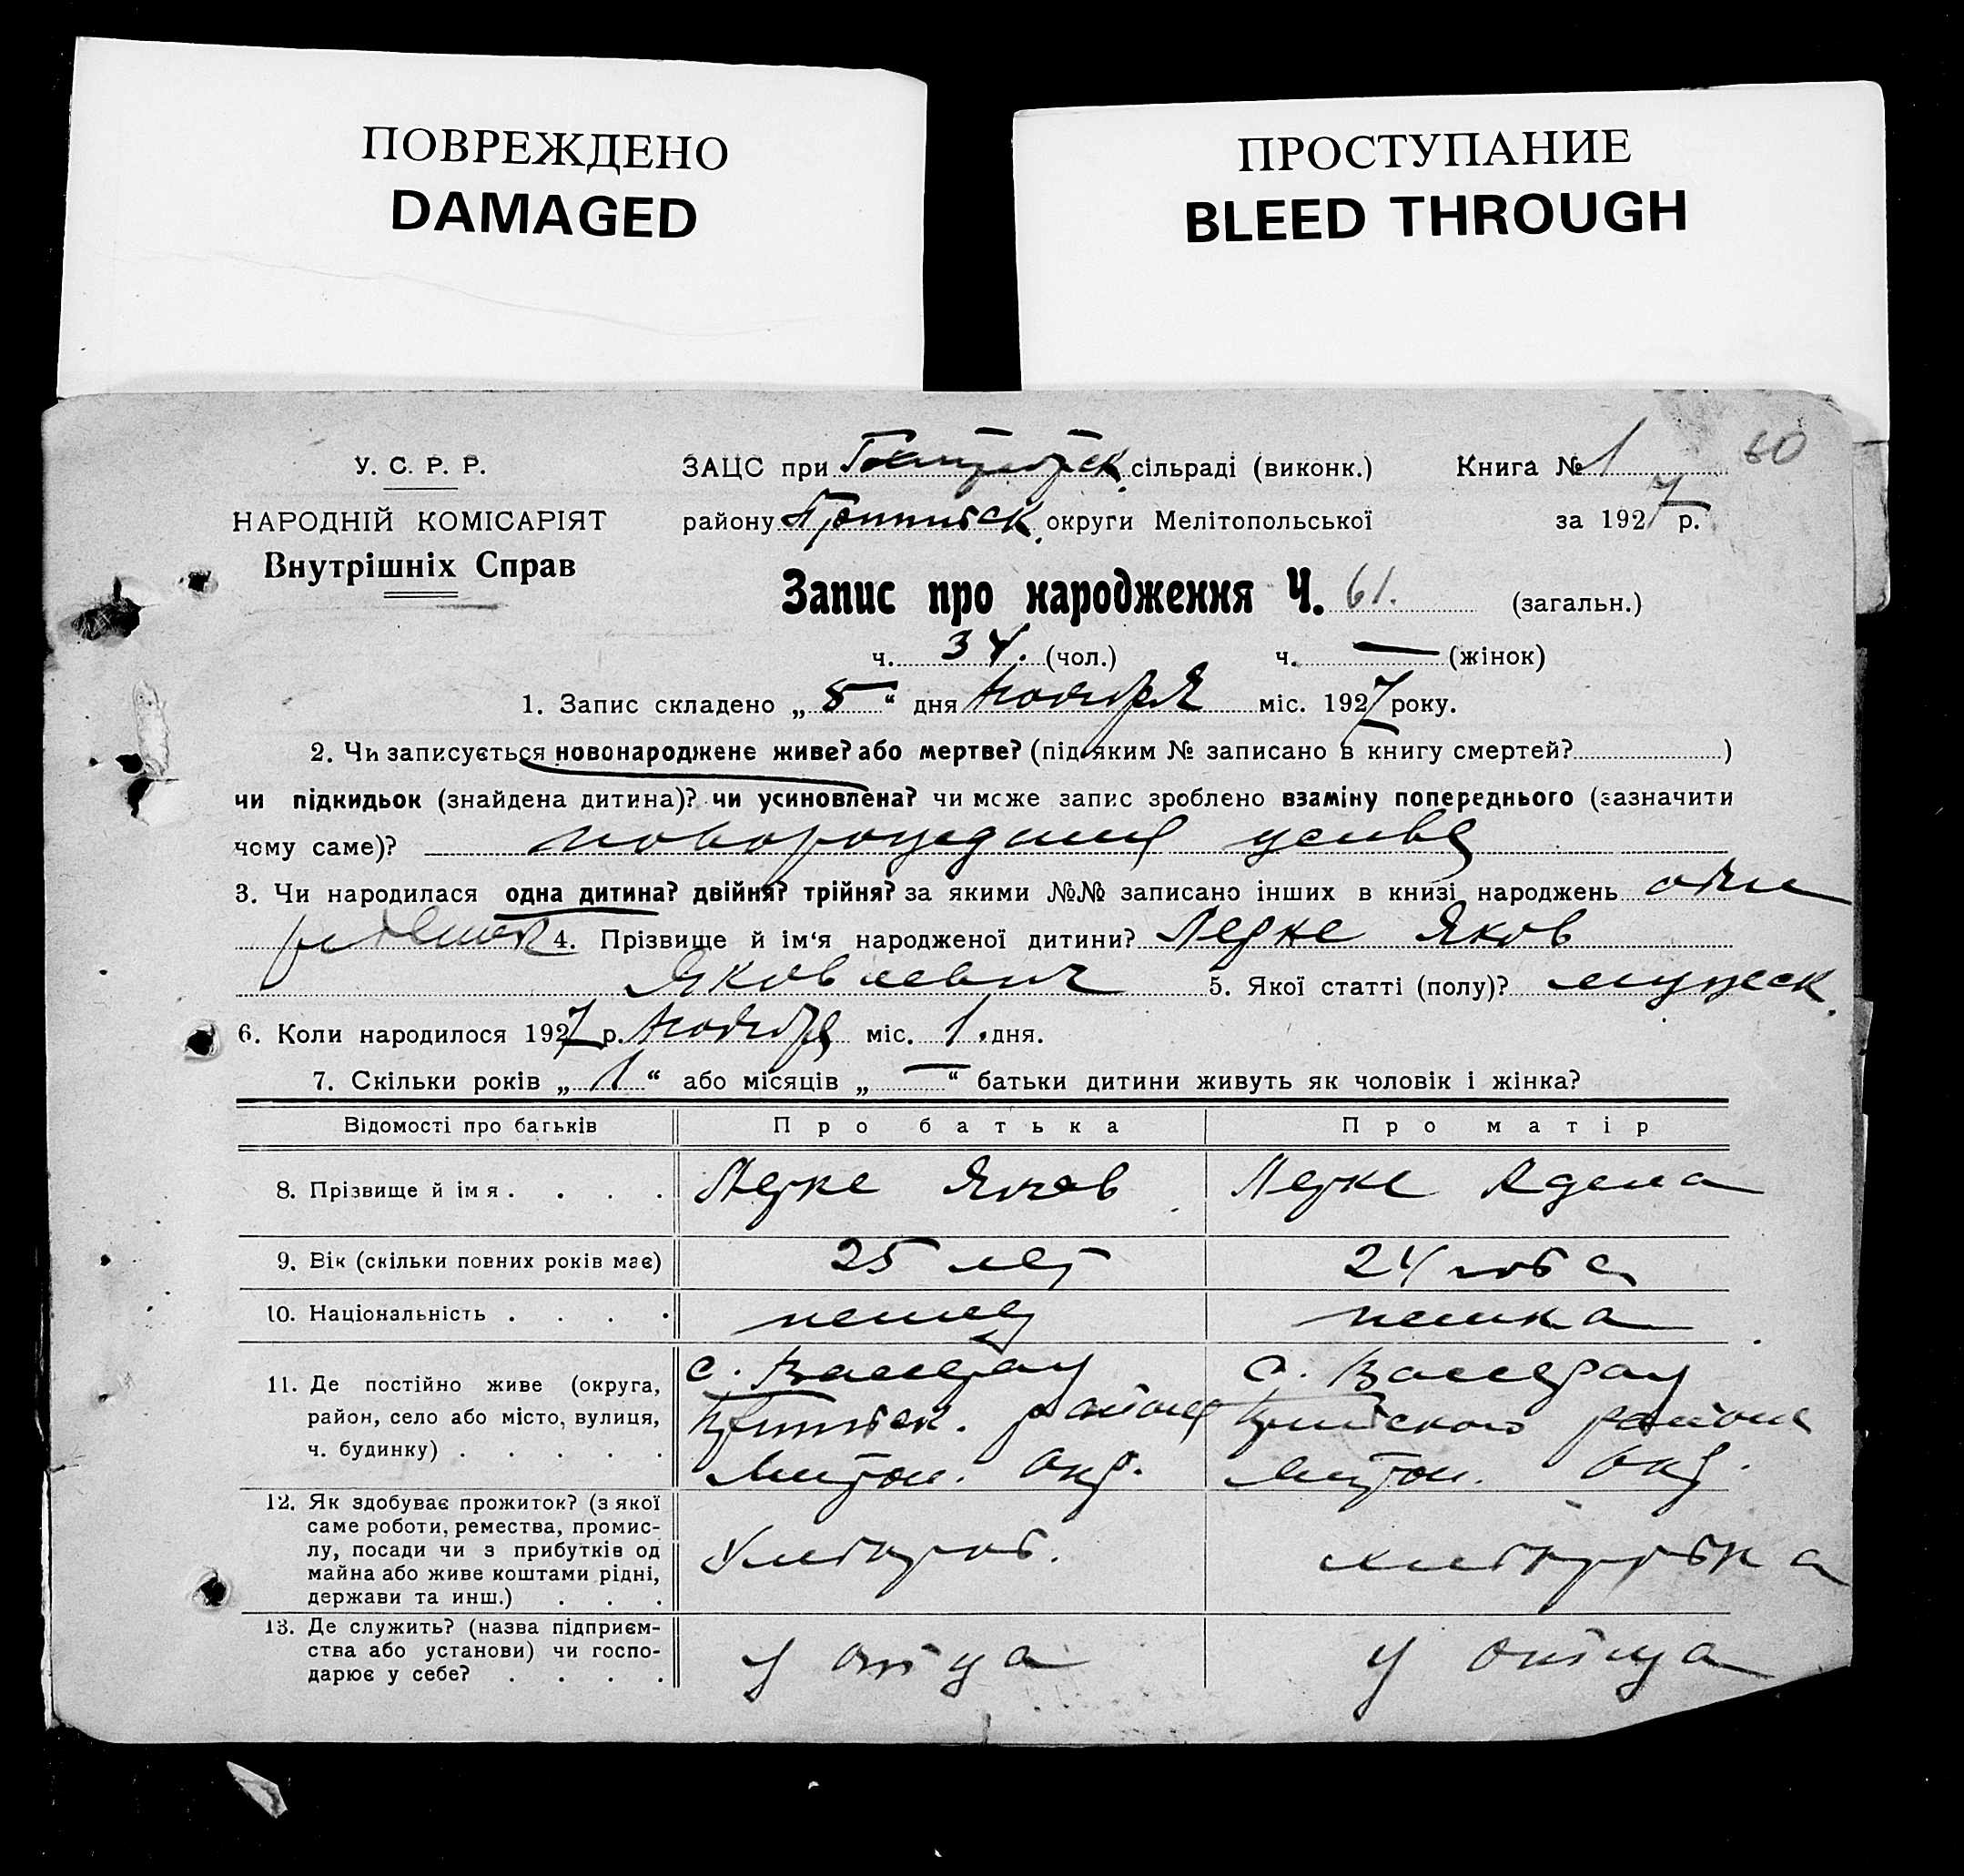 ПОВРЕЖДЕНО
DAMAGED
ПРОСТУПАНИЕ
BLEED THROUGH
60
У. С. Р. Р.
НАРОДНІЙ КОМІСАРІЯТ
Внутрішніх Справ
ЗАЦС при сільраді (виконк.) Книга № 1
району округи Мелітопольської за 1927 р.
Запис про народження Ч. 61. (загальн.)
ч. 34. (чол.) ч. — (жінок)
1. Запис складено „ 5 “ дня ноября міс. 1927 року.
2. Чи записується новонароджене живе? або мертве? (під яким № записано в книгу смертей? )
чи підкидьок (знайдена дитина)? чи усиновлена? чи може запис зроблено взаміну попереднього (зазначити
чому саме)?
3. Чи народилася одна дитина? двійня? трійня? за якими №№ записано інших в книзі народжень
4. Прізвище й ім'я народженої дитини? Яков
Яковлевич 5. Якої статті (полу)? мужеск.
6. Коли народилося 1927 р. ноября міс. 1. дня.
7. Скільки років „ 1 “ або місяців „ — “ батьки дитини живуть як чоловік і жінка?
Відомості про батьків Про батька Про матір
8. Прізвище й імя . . . . Яков
9. Вік (скільки повних років має) 25 лет 24 года
10. Національність . . . . немец немка
11. Де постійно живе (округа,
район, село або місто, вулиця,
ч. будинку) . . . . .
с. Вассерау
района
окр.
с. Вассерау
района
окр.
12. Як здобуває прожиток? (з якої
саме роботи, ремества, промис-
лу, посади чи з прибутків од
майна або живе коштами рідні,
держави та инш.) . . .
Хлебороб. хлеборобка
13. Де служить? (назва підприєм-
ства або установи) чи госпо-
дарює у себе? . . . .
у отца у отца